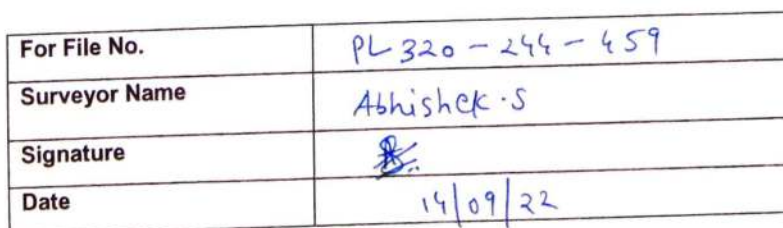 For File No. PL320-244-459
Surveyor Name Abhishek.S
Signature
Date 14/09/22